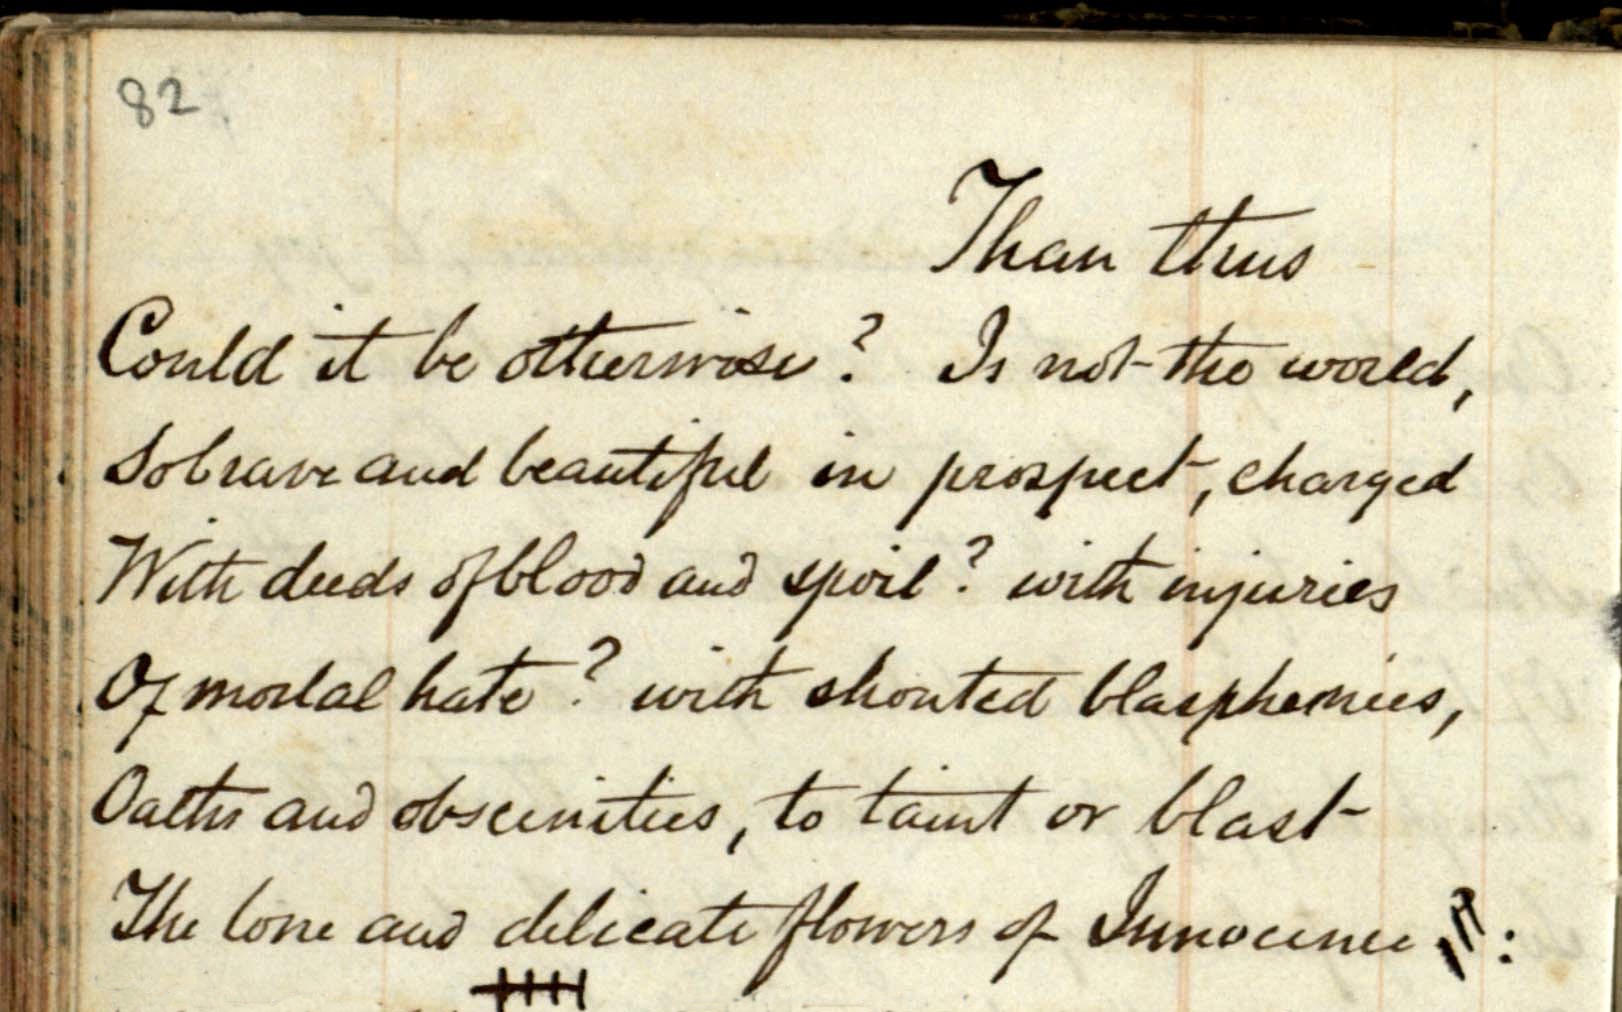 82
Than thus
Could it be otherwise? Is not the world,
So brave and beautiful in prospect, charged
With deeds of blood and spoil? with injuries
Of mortal hate? with shouted blasphemies,
Oaths and obscenities, to taint or blast
The lone and delicate flowers of Innocence :